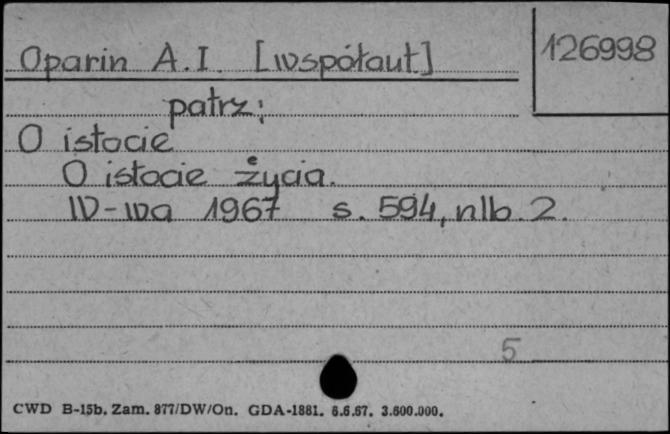 Oparin A.I. [współaut]
126998
patrz:
O istocie
O istocie życia.
W-wa 1967 s. 594, nlb. 2.
5
CWD B-15b. Zam. 877/DW/On. GDA-1881. 6.6.67. 3.600.000.